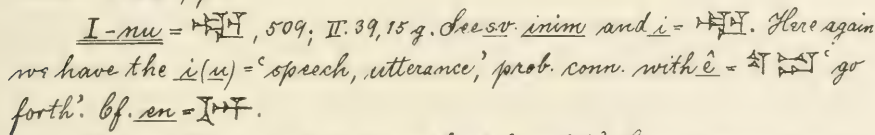 I-nu = 𒅗, 509; II. 39, 15 g. See sv. inim and i = 𒅗. Here again
we have the i(u) = ‘speech, utterance,’ prob. conn. with ê = 𒌓𒁺 ‘go
forth’. Cf. en =